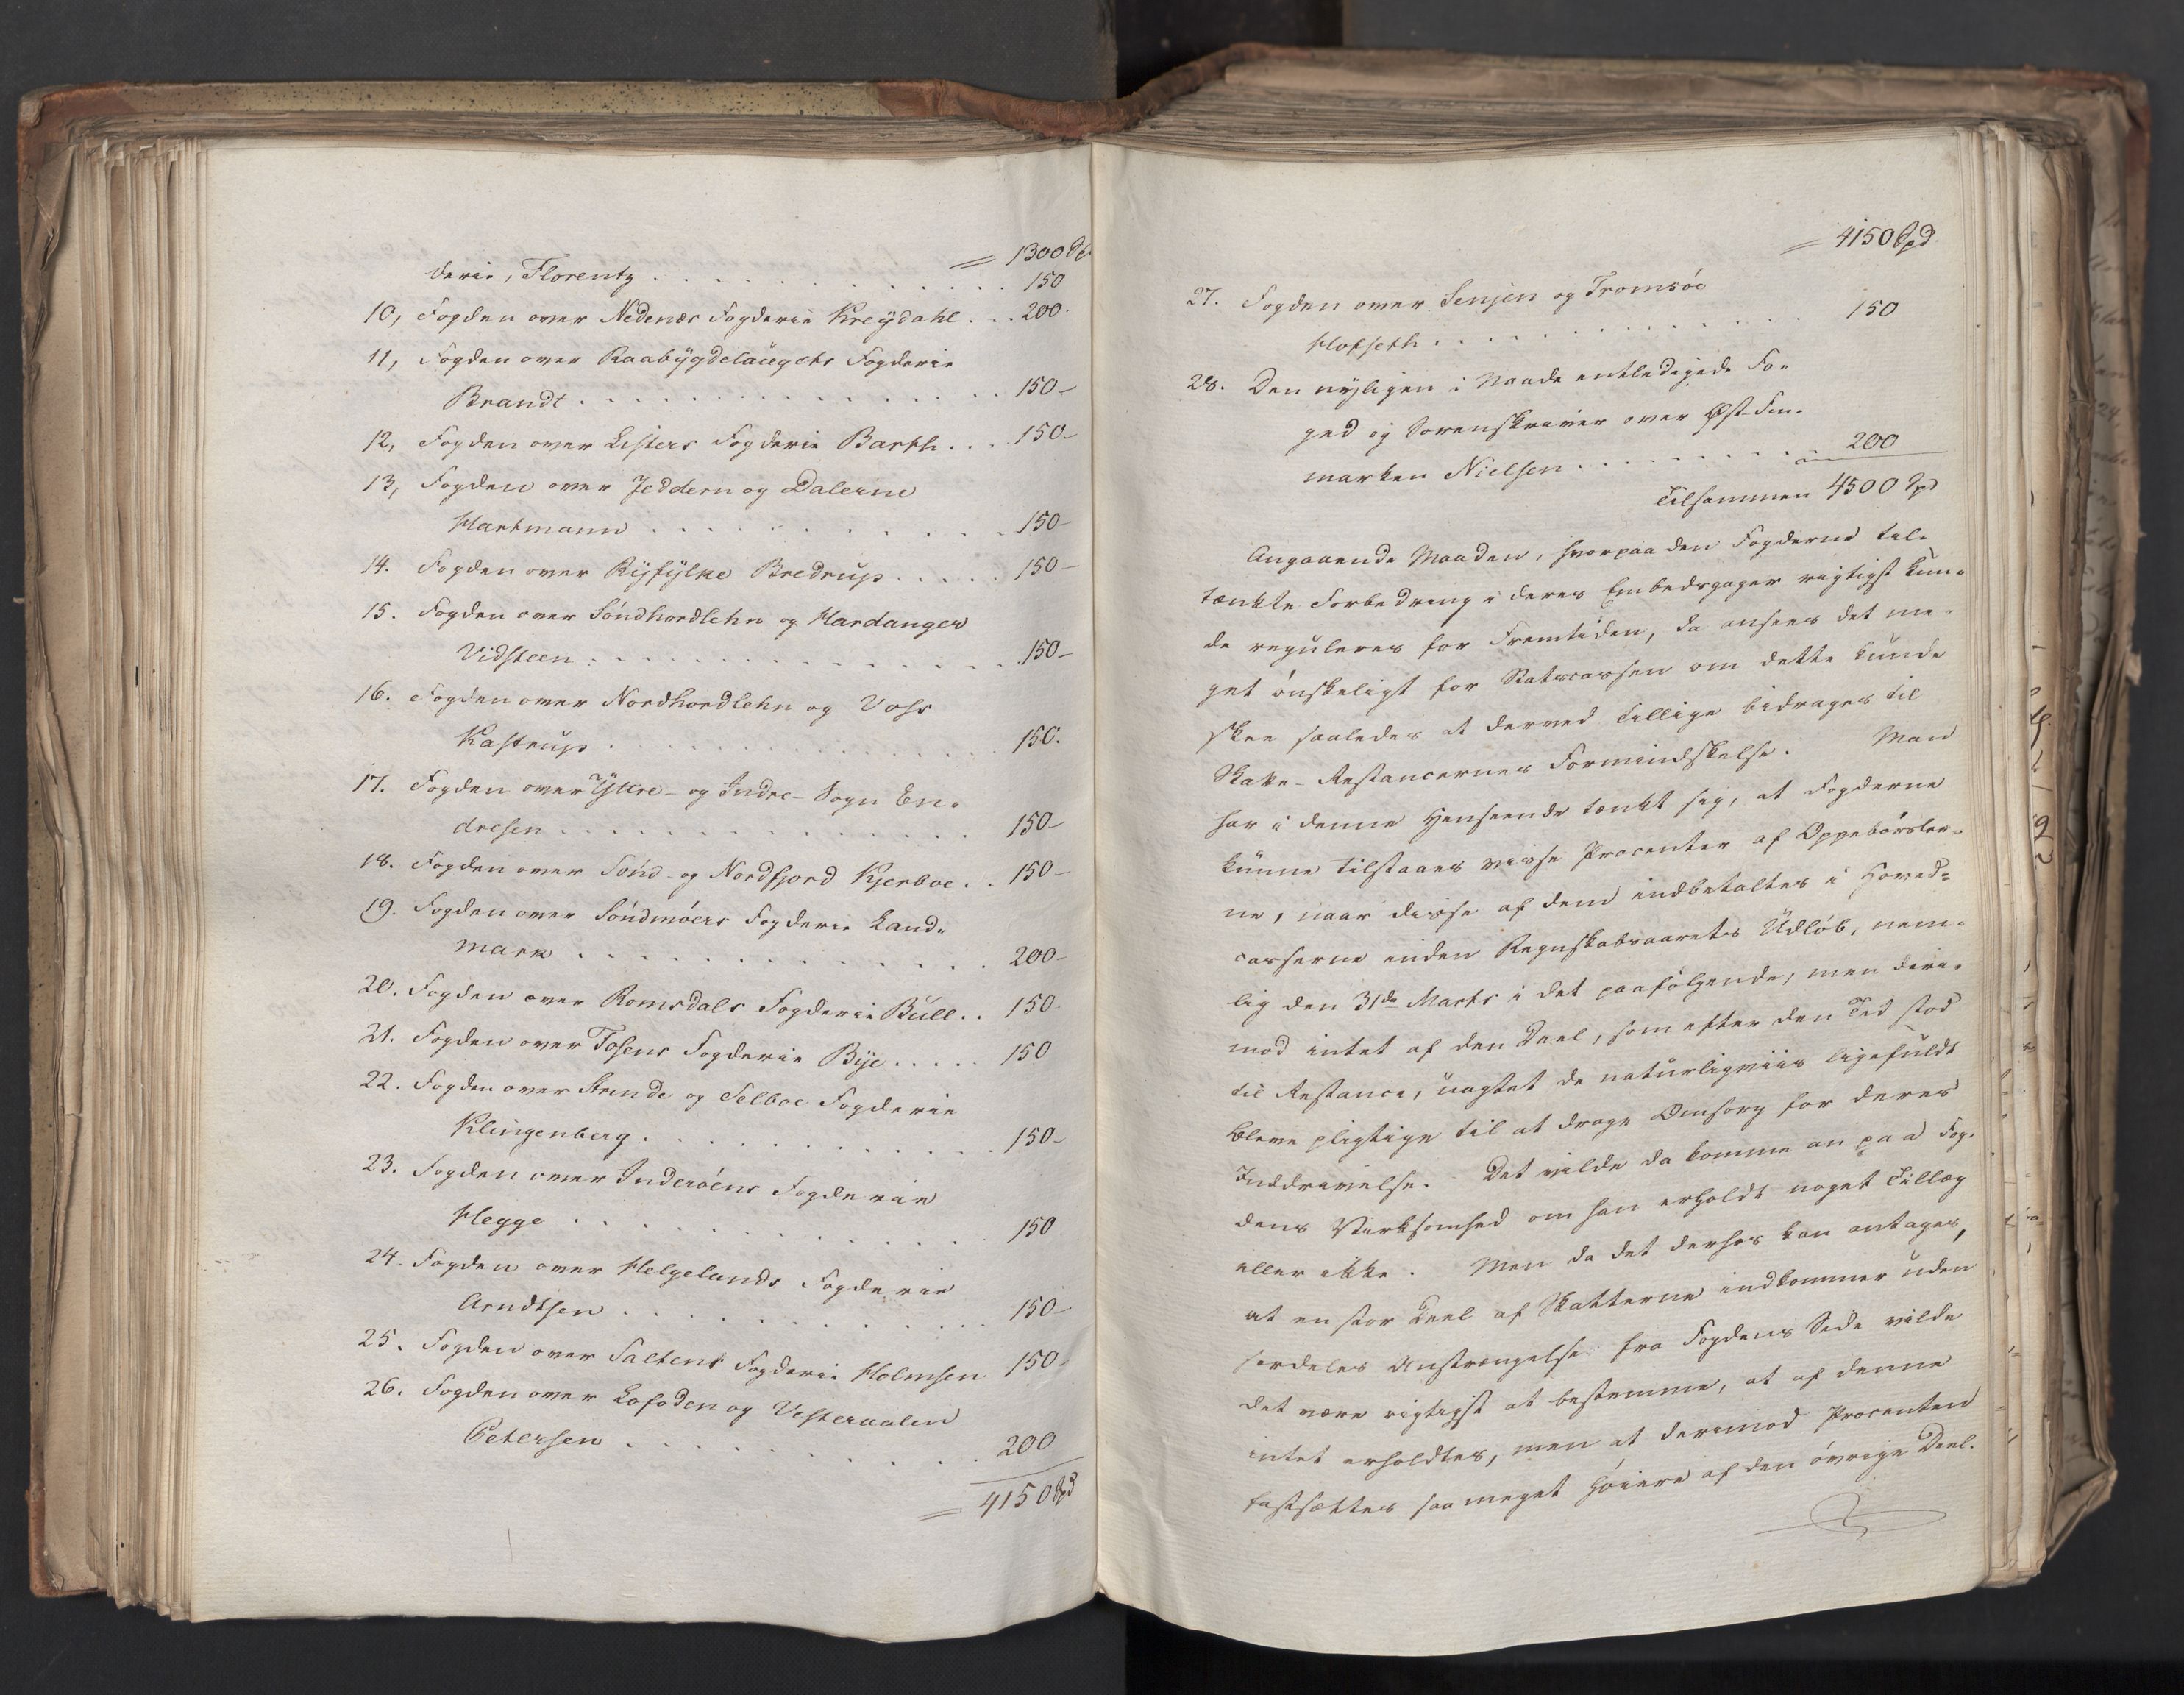 = 1300 Spd
derie, Florentz . . . . . . . . . . . . 150
10, Fogden over Nedenæs Fogderie Kreÿdahl . . . 200.
11, Fogden over Raabÿgdelaugets Fogderie
Brandt . . . . . . . . . . . . . . . . 150-
12, Fogden over Listers Fogderie Barth . . . 150-
13, Fogden over Jeddern og Dalerne
Hartmann . . . . . . . . . . . . 150-
14. Fogden over Rÿfÿlke Bredrup . . . . . 150-
15. Fogden over Söndhordlehn og Hardanger
Vidsteen . . . . . . . . . . . . . . . 150-
16. Fogden over Nordhordlehn og Voss
Kastrup . . . . . . . . . . . . . . . 150.
17. Fogden over Yttre- og Indre- Sogn En-
dresen . . . . . . . . . . . . . . . 150-
18. Fogden over Sönd- og Nordfjord Kjerboe . . 150-
19. Fogden over Söndmöers Fogderie Land-
mark . . . . . . . . . . . . . . . 200-
20. Fogden over Romsdals Fogderie Bull . . 150.
21. Fogden over Fosens Fogderie Bÿe . . . . . 150
22. Fogden over Strinde og Selboe Fogderie
Klingenberg . . . . . . . . . . . . 150-
23. Fogden over Inderöens Fogderie
Hegge . . . . . . . . . . . . . . 150
24. Fogden over Helgelands Fogderie
Arndtsen . . . . . . . . . . . . . 150-
25. Fogden over Saltens Fogderie Holmsen 150-
26. Fogden over Lofoden og Vesteraalen
Petersen . . . . . . . . . . . . 200
= 4150 Spd
= 4150 Spd.
27. Fogden over Senjen og Tromsöe
Hofseth . . . . . . . . . . . . . 150
28. Den nÿligen i Naade entledigede Fo-
ged og Sorenskriver over Øst-Fin-
marken Nielsen . . . . . . . . . 200
Tilsammen 4500 Spd
Angaaende Maaden, hvorpaa den Fogderne til-
tænkte Forbedring i deres Embedsgager rigtigst kun-
de reguleres for Fremtiden, da ansees det me-
get önskeligt for Statscassen om dette kunde
skee saaledes at derved tillige bidrages til
Skatte-Restancernes Formindskelse. Man
har i denne Henseende tænkt sig, at Fogderne
kunne tilstaaes visse Procenter af Oppebörsler-
ne, naar disse af dem indbetaltes i Hoved-
casserne inden Regnskabsaarets Udlöb, nem-
lig den 31de Marts i det paafölgende, men deri-
mod intet af den Deel, som efter den Tid stod
til Restance, uagtet de naturligviis ligefuldt
bleve pligtige til at drage Omsorg for deres
Inddrivelse. Det vilde da komme an paa Fog-
dens Virksomhed om han erholdt noget Tillæg
eller ikke. Men da det derhos kan antages,
at en stor Deel af Skatterne indkommer uden
særdeles Anstrængelse fra Fogdens Side vilde
det være rigtigst at bestemme, at af denne
intet erholdtes, men at derimod Procenten
fastsættes saa meget höiere af den övrige Deel.